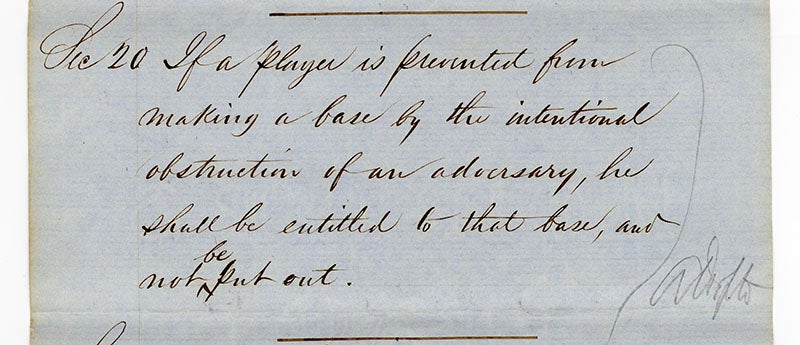 Sec 20 If a player is prevented from
making a base by the intentional
obstruction of an adversary, he
shall be entitled to that base, and
be
not put out.